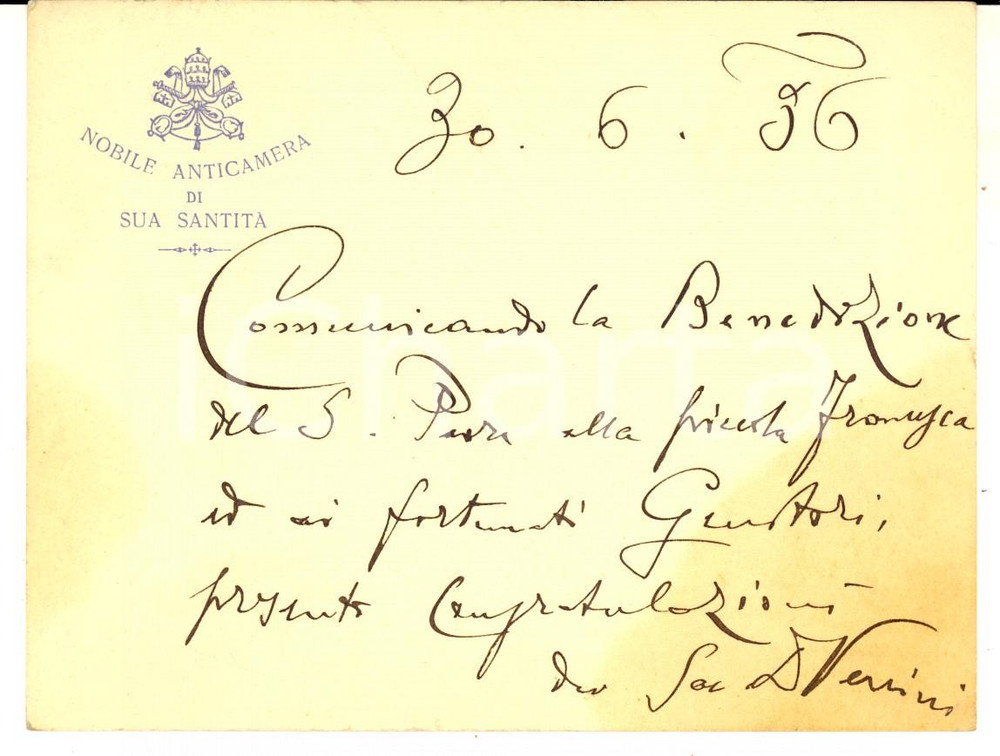 NOBILE ANTICAMERA
DI
SUA SANTITÀ
30. 6. 56
Comunicando la Benedizione
del S. Padre alla piccola Francesca
ed ai fortunati Genitori,
presento Congratulazioni
Venini
iCharta